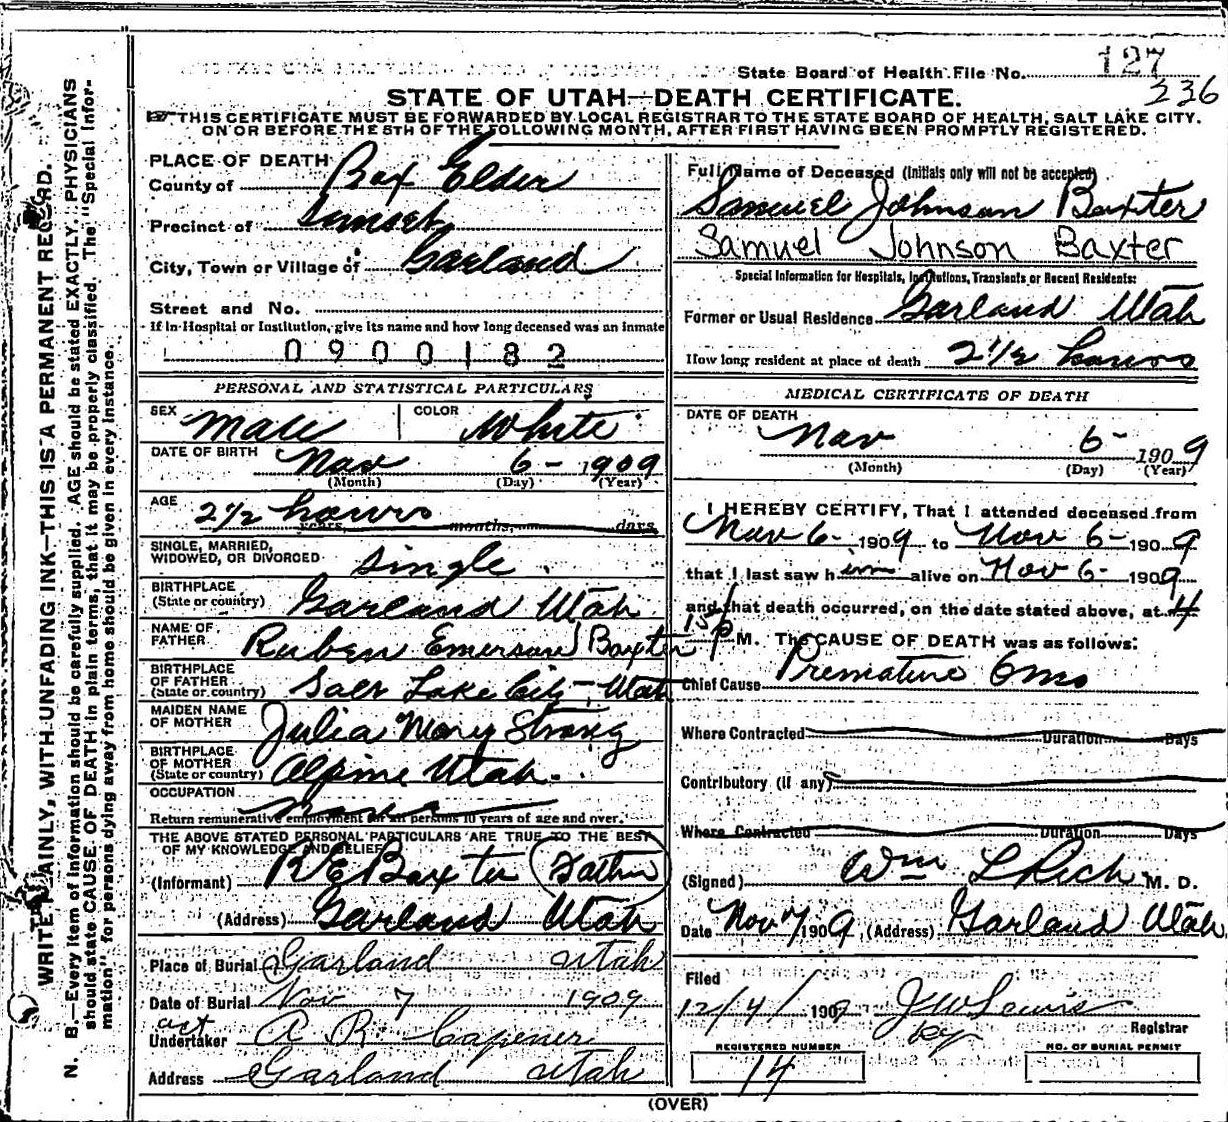 State Board of Health File No. 127
236
STATE OF UTAH—DEATH CERTIFICATE.
THIS CERTIFICATE MUST BE FORWARDED BY LOCAL REGISTRAR TO THE STATE BOARD OF HEALTH, SALT LAKE CITY.
ON OR BEFORE THE 5TH OF THE FOLLOWING MONTH, AFTER FIRST HAVING BEEN PROMPTLY REGISTERED.
WRITE PLAINLY, WITH UNFADING INK—THIS IS A PERMANENT RECORD.
N. B.—Every item of information should be carefully supplied. AGE should be stated EXACTLY. PHYSICIANS
should state CAUSE OF DEATH in plain terms, that it may be properly classified. The "Special Infor-
mation" for persons dying away from home should be given in every instance.
PLACE OF DEATH
County of Box Elder
Precinct of Sunset
City, Town or Village of Garland
Street and No.
If in Hospital or Institution, give its name and how long deceased was an inmate
0900182
PERSONAL AND STATISTICAL PARTICULARS
SEX Male COLOR White
DATE OF BIRTH Nov 6 - 1909
(Month) (Day) (Year)
AGE 2 1/2 hours
years, months, days
SINGLE, MARRIED,
WIDOWED, OR DIVORCED single
BIRTHPLACE
(State or country) Garland Utah
NAME OF
FATHER Ruben Emerson Baxter
BIRTHPLACE
OF FATHER
(State or country) Salt Lake City - Utah
MAIDEN NAME
OF MOTHER Julia Mary Strong
BIRTHPLACE
OF MOTHER
(State or country) Alpine Utah.
OCCUPATION None
Return remunerative employment for all persons 10 years of age and over.
THE ABOVE STATED PERSONAL PARTICULARS ARE TRUE TO THE BEST
OF MY KNOWLEDGE AND BELIEF
(Informant) R E Baxter (Father)
(Address) Garland Utah
Place of Burial Garland Utah
Date of Burial Nov 7 1909
act
Undertaker A R Capener
Address Garland Utah
Full Name of Deceased (Initials only will not be accepted)
Samuel Johnson Baxter
Samuel Johnson Baxter
Special Information for Hospitals, Institutions, Transients or Recent Residents:
Former or Usual Residence Garland Utah
How long resident at place of death 2 1/2 hours
MEDICAL CERTIFICATE OF DEATH
DATE OF DEATH
Nov 6 - 1909
(Month) (Day) (Year)
I HEREBY CERTIFY, That I attended deceased from
Nov 6 - 1909 to Nov 6 - 1909
that I last saw him alive on Nov 6 - 1909
and that death occurred, on the date stated above, at 4
15 p M. The CAUSE OF DEATH was as follows:
Chief Cause Premature 6 mo
Where Contracted Duration Days
Contributory (if any)
Where Contracted Duration Days
(Signed) Wm L Rich M. D.
Date Nov 7 1909, (Address) Garland Utah
Filed
12/4/1909 J W Lewis
Registrar
REGISTERED NUMBER
14
NO. OF BURIAL PERMIT
(OVER)